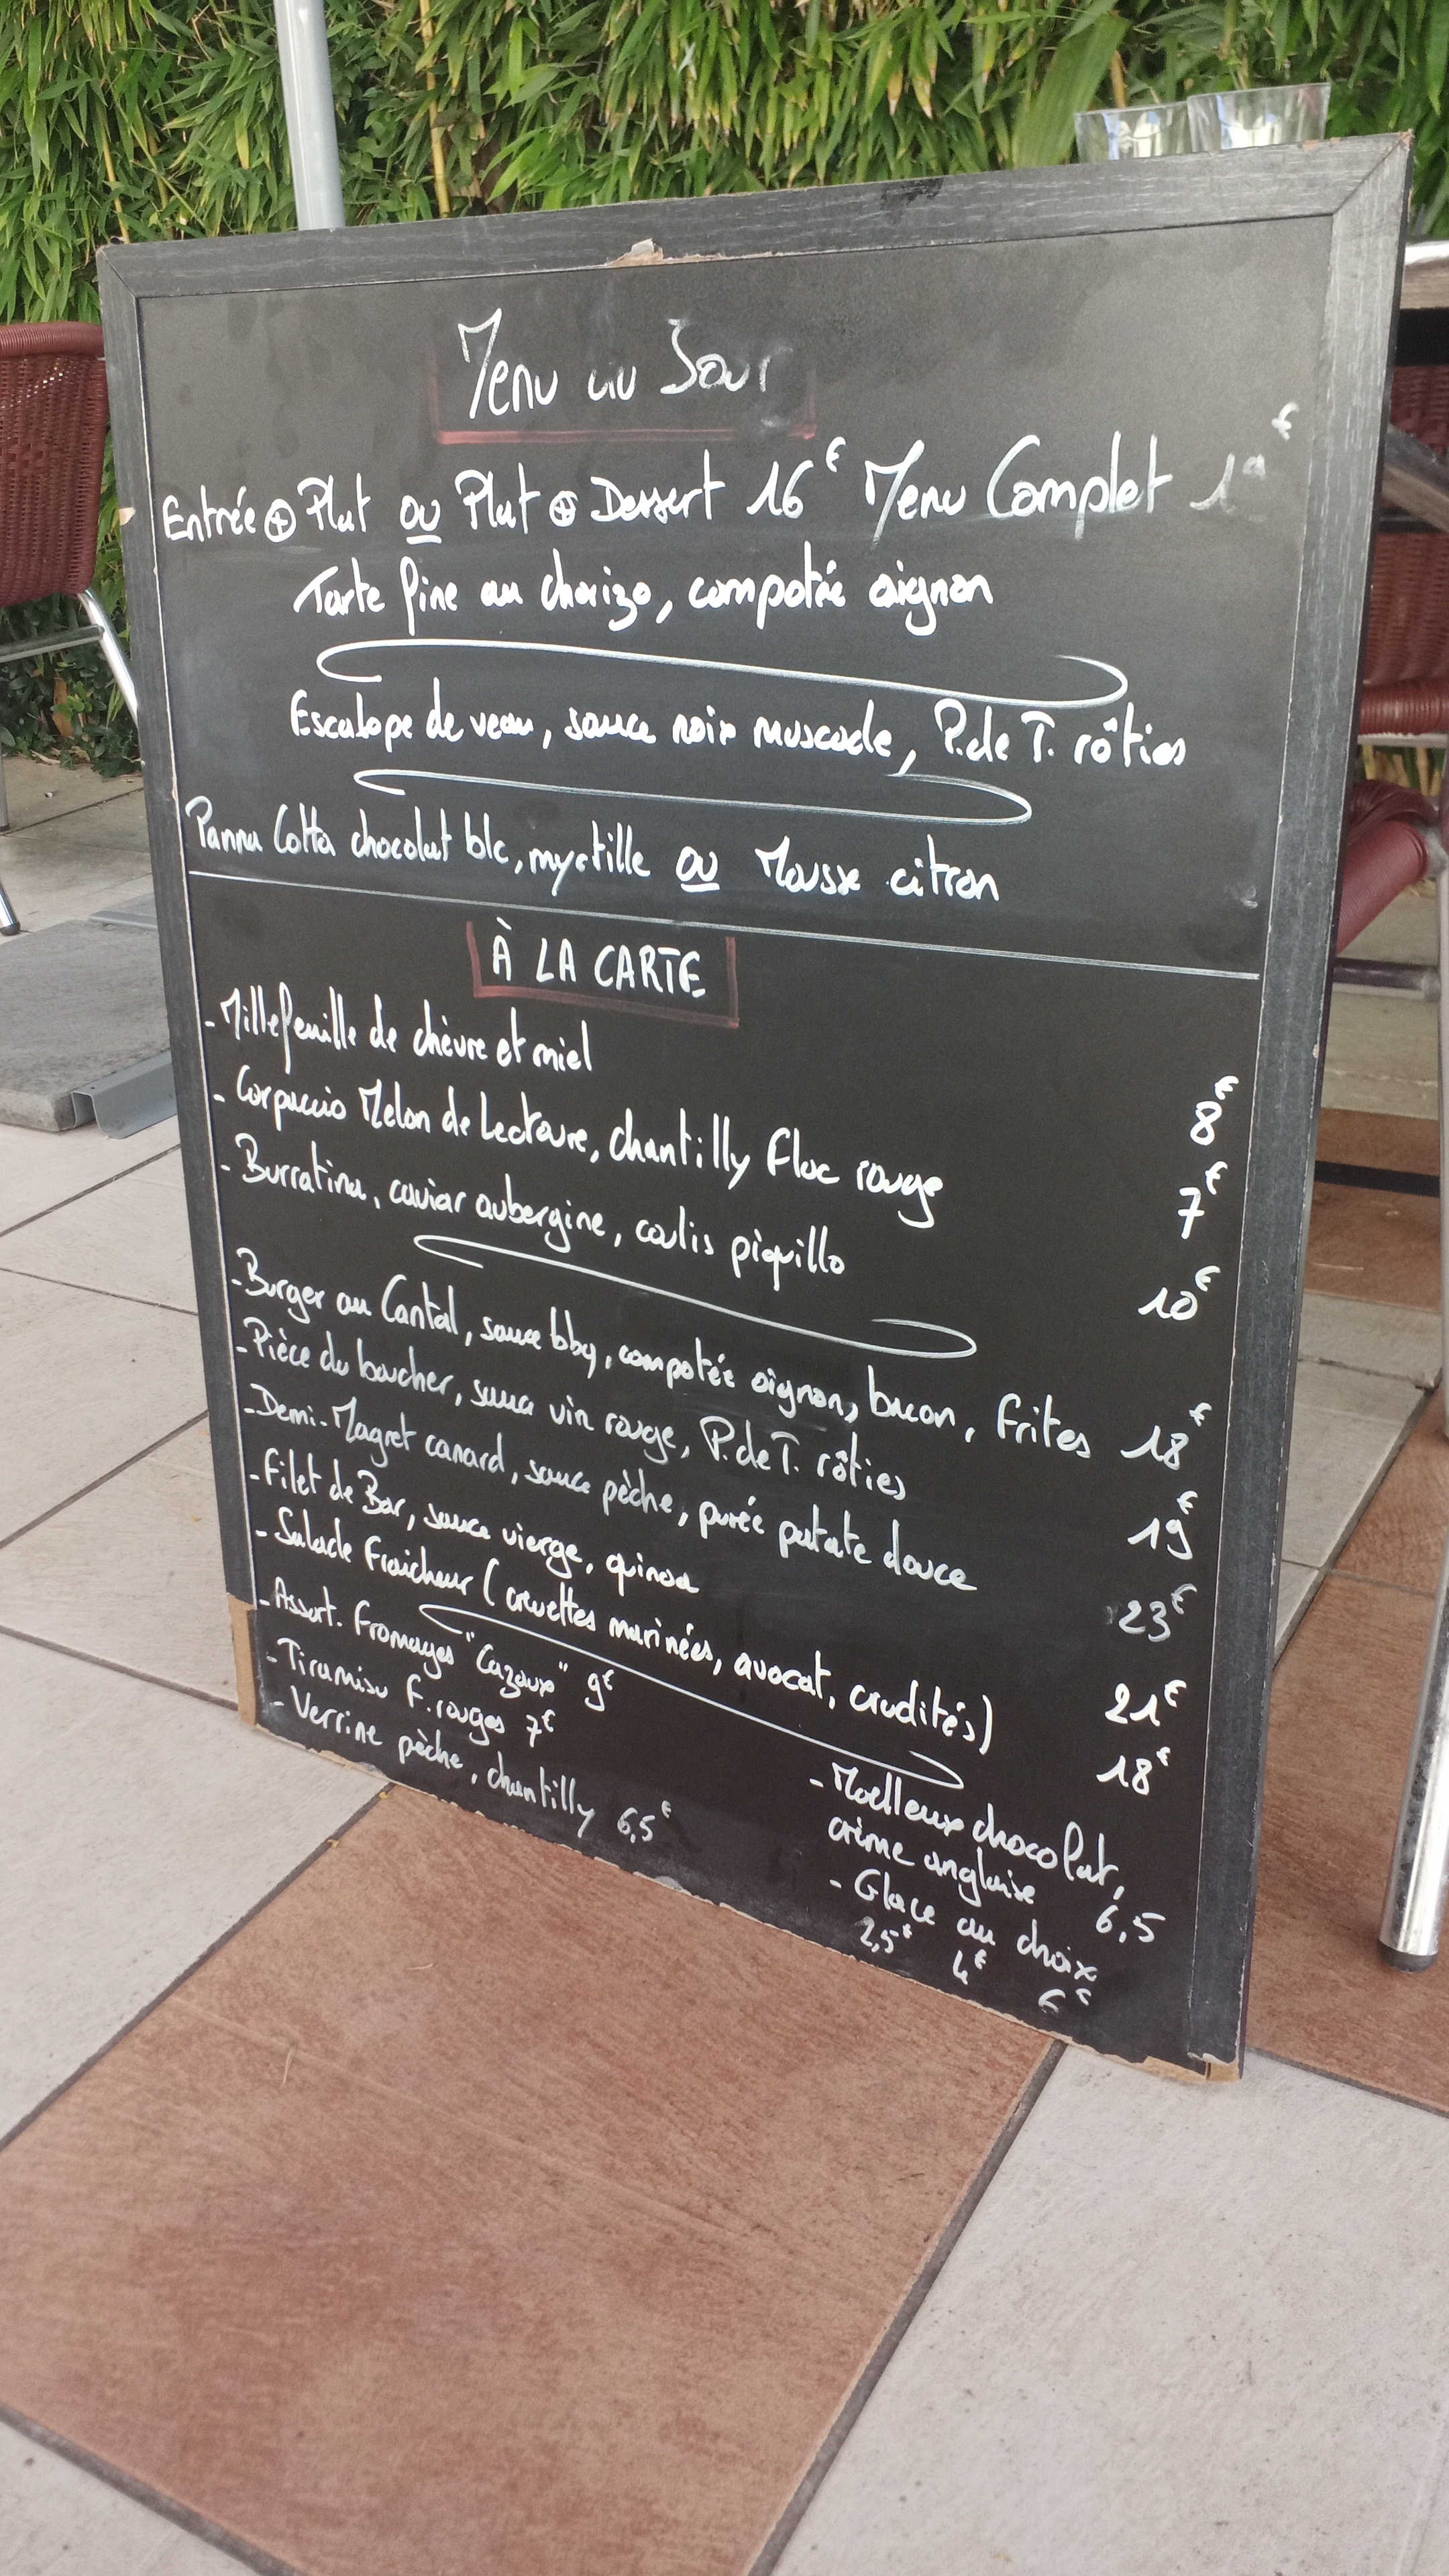 Menu du Jour
Entrée + Plat ou Plat + Dessert 16€ Menu Complet 19€
Tarte fine au chorizo, compotée oignon
Escalope de veau, sauce noix muscade, P.de T. rôties
Panna Cotta chocolat blc, myrtille ou Mousse citron
À LA CARTE
- Millefeuille de chèvre et miel 8€
- Carpaccio Melon de Lectoure, chantilly Floc rouge 7€
- Burratina, caviar aubergine, coulis piquillo 10€
- Burger au Cantal, sauce bbq, compotée oignon, bacon, frites 18€
- Pièce du boucher, sauce vin rouge, P.de T. rôties 19€
- Demi-Magret canard, sauce pêche, purée patate douce 23€
- Filet de Bar, sauce vierge, quinoa 21€
- Salade Fraîcheur (crevettes marinées, avocat, crudités) 18€
- Assort. Fromages "Cazaux" 9€
- Tiramisu F. rouges 7€
- Verrine pêche, chantilly 6,5€
- Moelleux chocolat,
crème anglaise 6,5
- Glace au choix
2,5€ 4€ 6€